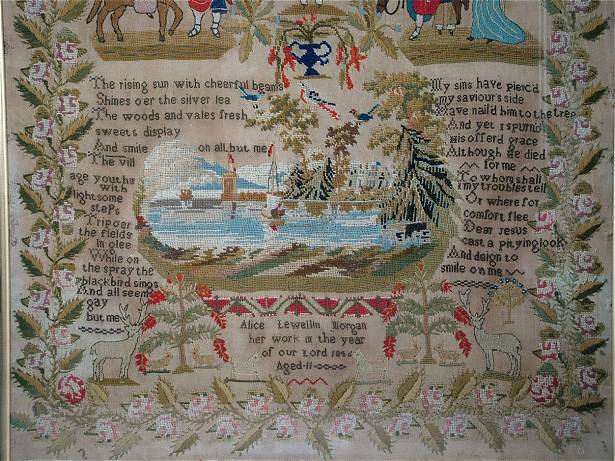 The rising sun with cheerful beams
Shines o'er the silver lea
The woods and vales fresh
sweets display
And smile on all, but me
The vill
age youths
with
lightsome
steps
Trip o'er
the fields
in glee
While on
the spray the
blackbird sings
And all seem
gay
but me
My sins have pierc'd
my saviour's side
Have nail'd him to the tree
And yet I spurn'd
his offer'd grace
Although he died
for me
To whom shall
my troubles tell
Or where for
comfort flee
Dear Jesus
cast a pitying look
And deign to
smile on me
Alice Lewellin Morgan
her work in the year
of our Lord 1846
Aged 11